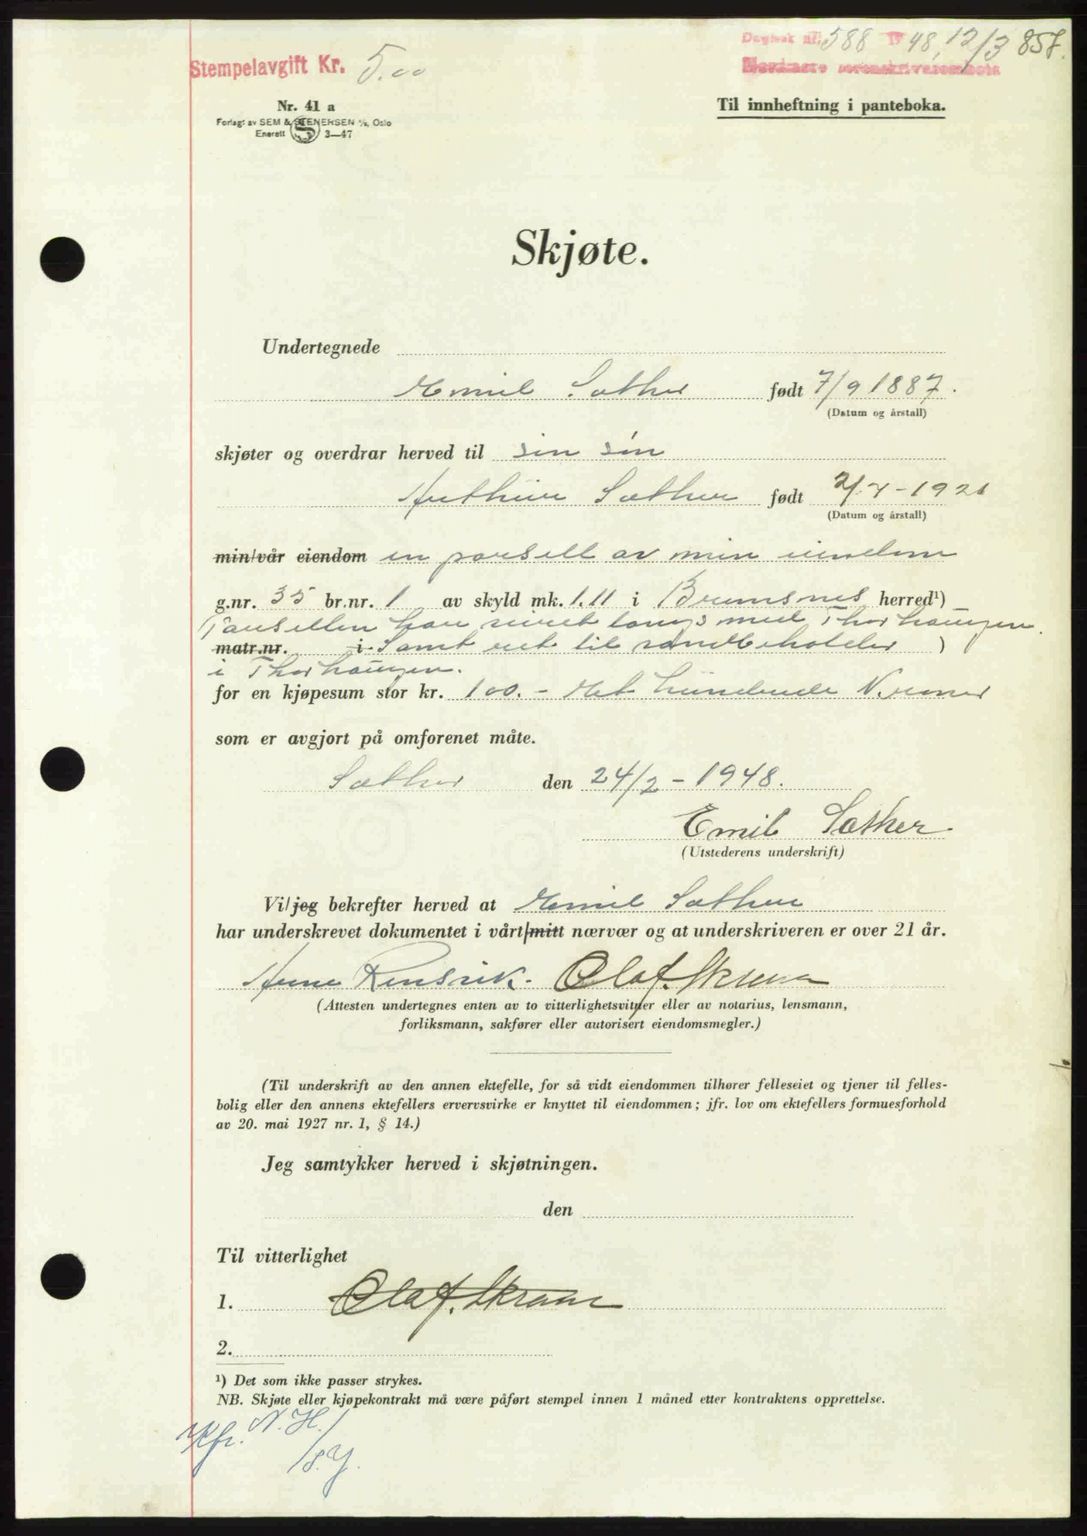 Dagbok nr. 588 19 48, 12/3 857.
Stempelavgift Kr. 5.00
Nordmøre sorenskriverembete
Nr. 41 a
Forlagt av SEM & STENERSEN A/S, Oslo
Enerett 3—47
Til innheftning i panteboka.
Skjøte.
Undertegnede
Emil Sæther født 7/9 1887.
(Datum og årstall)
skjøter og overdrar herved til sin søn
Arthur Sæther født 2/7 - 1921
(Datum og årstall)
min/vår eiendom en parsell av min eiendom
g.nr. 35 br.nr. 1 av skyld mk. 1.11 i Bremsnes herred¹)
Parsellen har navnet med Thorhaugen.
matr.nr. i Samt ret til )
i Thorhaugen.
for en kjøpesum stor kr. 100. - Et hundrede Kroner
som er avgjort på omforenet måte.
Sæther den 24/2 - 1948.
Emil Sæther
(Utstederens underskrift)
Vi/jeg bekrefter herved at Emil Sæther
har underskrevet dokumentet i vårt/mitt nærvær og at underskriveren er over 21 år.
Arne Rensvik. Olaf. Skram
(Attesten undertegnes enten av to vitterlighetsvitner eller av notarius, lensmann,
forliksmann, sakfører eller autorisert eiendomsmegler.)
(Til underskrift av den annen ektefelle, for så vidt eiendommen tilhører felleseiet og tjener til felles-
bolig eller den annens ektefellers ervervsvirke er knyttet til eiendommen; jfr. lov om ektefellers formuesforhold
av 20. mai 1927 nr. 1, § 14.)
Jeg samtykker herved i skjøtningen.
den
Til vitterlighet
1. Olaf. Skram
2.
¹) Det som ikke passer strykes.
NB. Skjøte eller kjøpekontrakt må være påført stempel innen 1 måned etter kontraktens opprettelse.
Kfr. N.H.